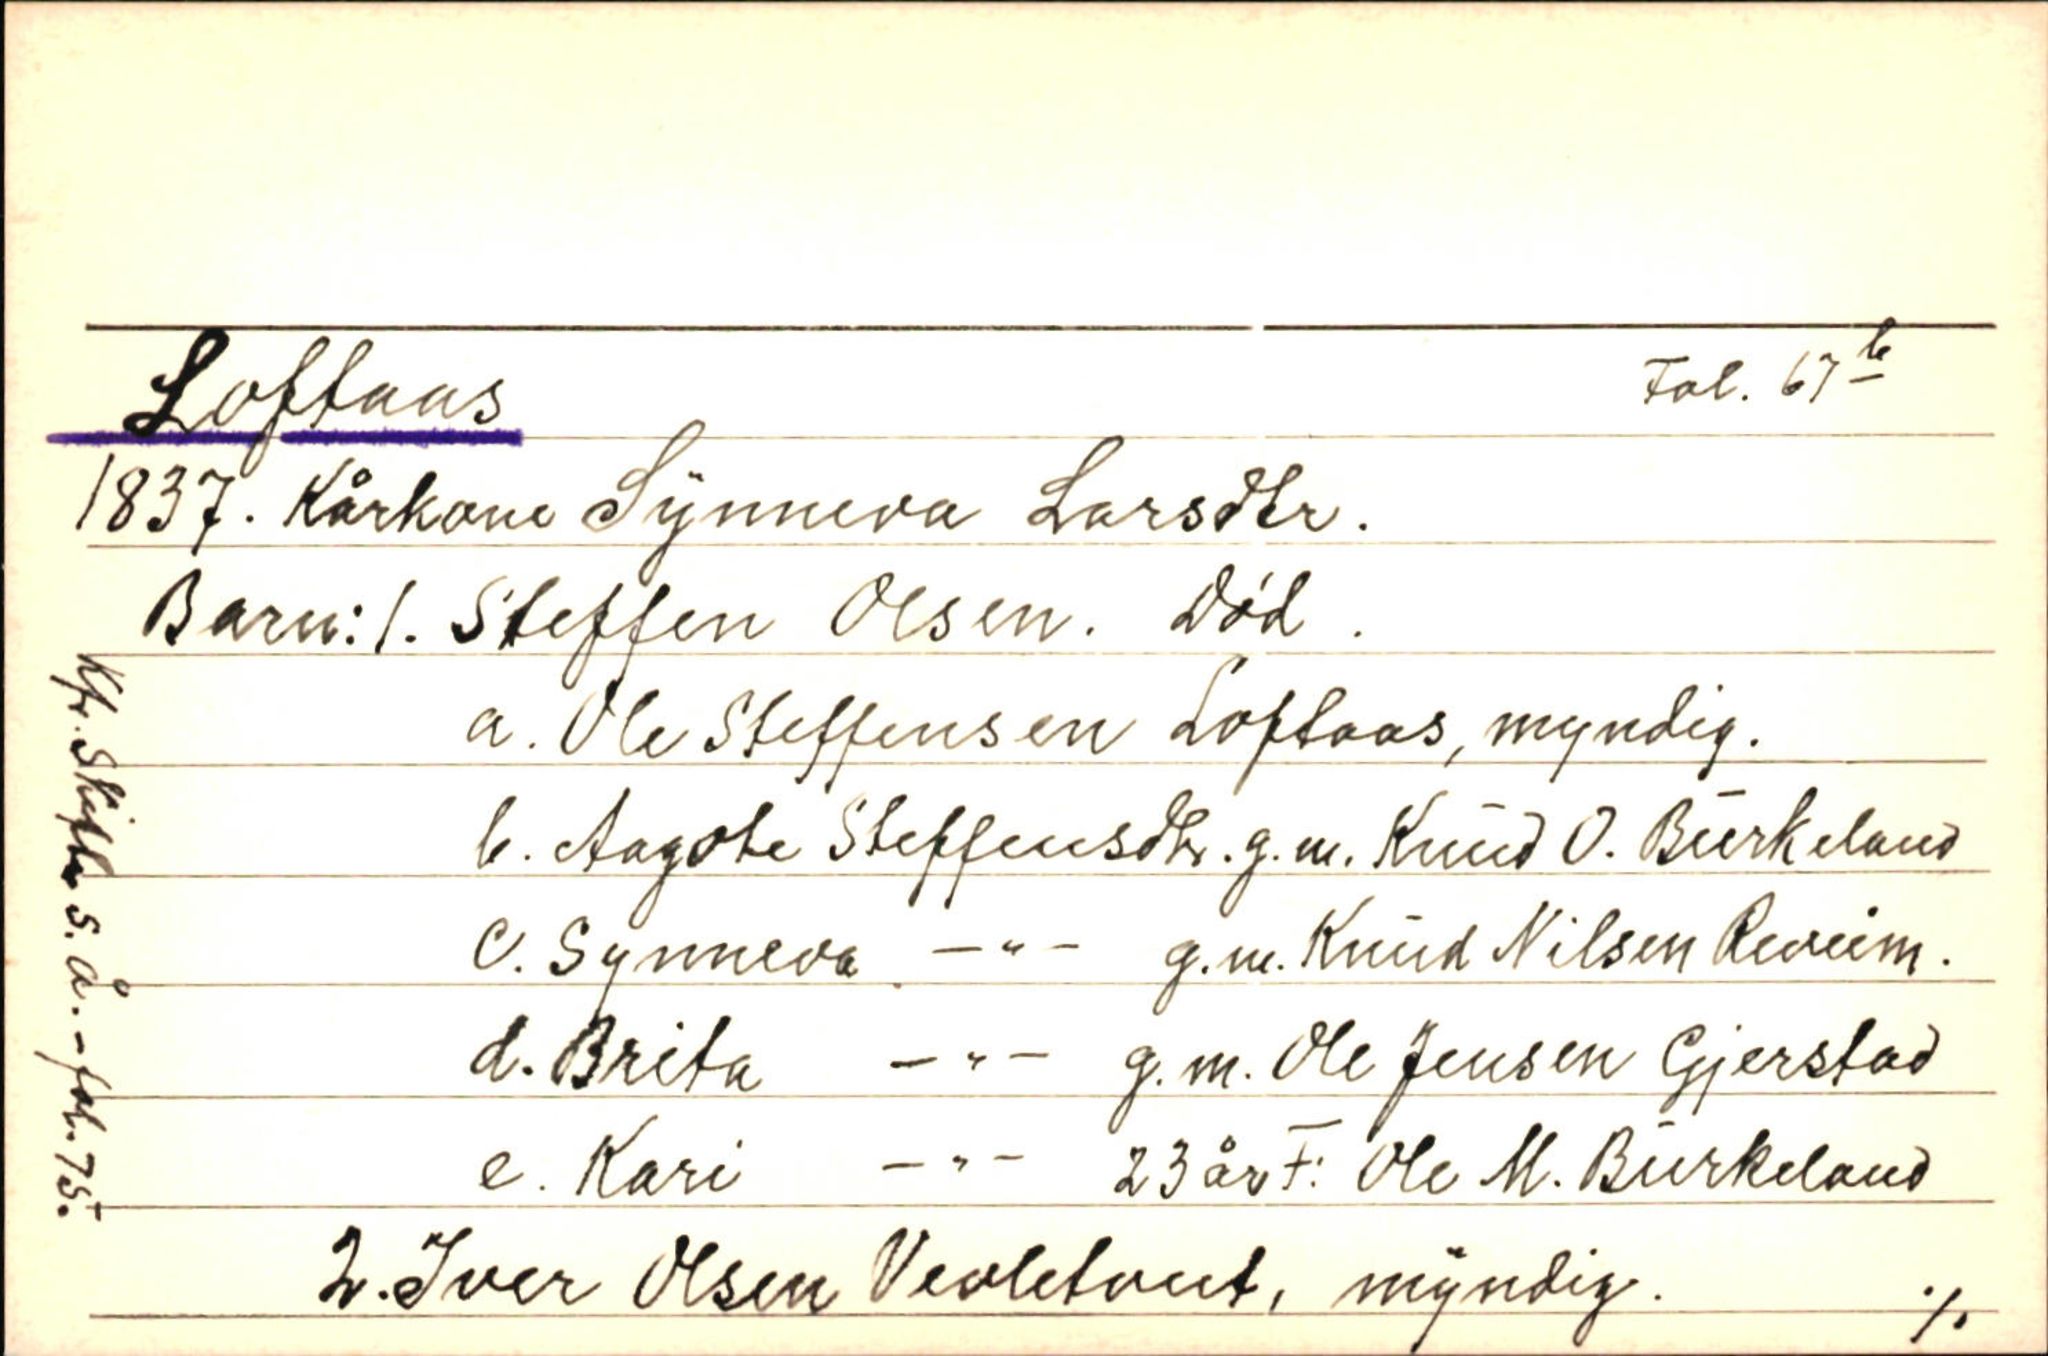 Loftaas Fol. 67b
1837. Kårkone Sÿnneva Larsdtr.
Barn: 1. Steffen Olsen. Død.
a. Ole Steffensen Loftaas, myndig.
b. Aagote Steffensdtr. g.m. Knud O. Bürkeland
c. Synneva —"— g.m. Knud Nilsen Reveim.
d. Brita —"— g.m. Ole Jensen Gjerstad
e. Kari —"— 23 år F: Ole M. Bürkeland
2. Iver Olsen mÿndig. ./.
Kfr. Skifte s. å. - fol. 75.